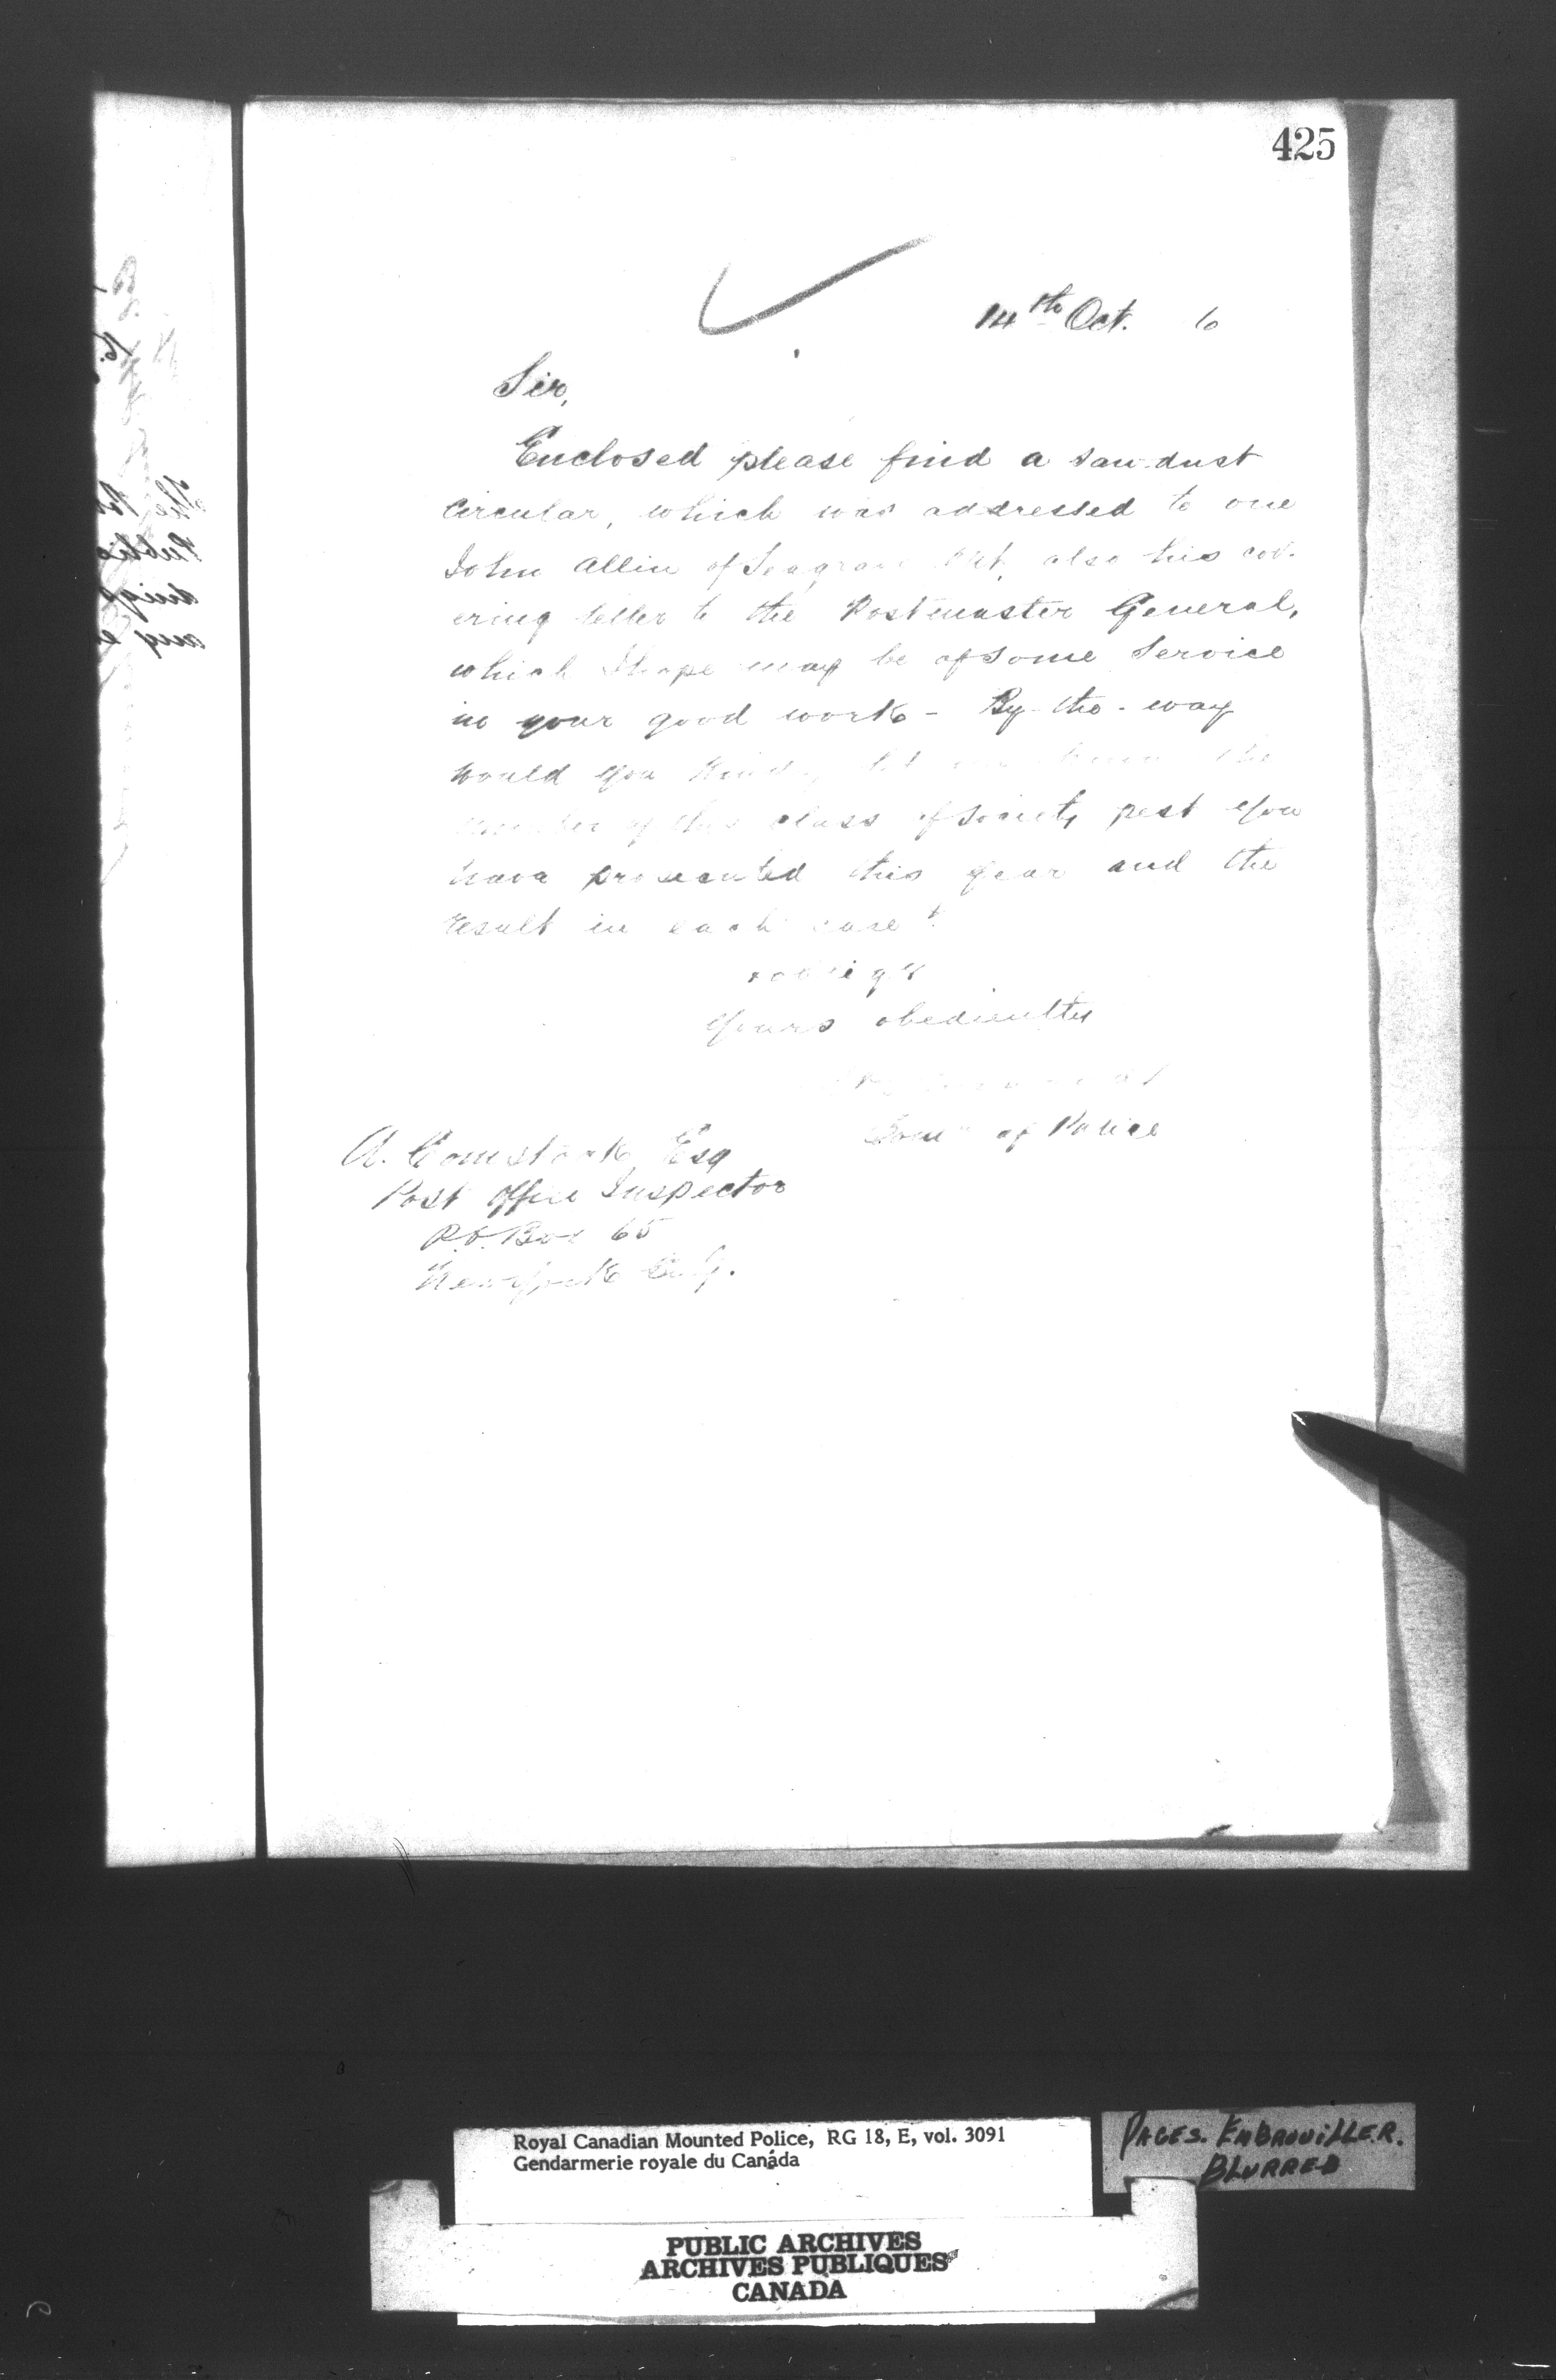 425
14th Oct. 6
Sir,
Enclosed please find a saw-dust
circular, which was addressed to one
John Allin of Seagrave Ont, also his cov-
ering letter to the Postmaster General,
which I hope may be of some service
in your good work - By-the-way
would you kindly let me know the
number of this class of society pest you
have prosecuted this year and the
result in each case?
Yours obediently
Comr of Police
A. Comstock Esq
Post Office Inspector
P.O. Box 65
New York City.
Royal Canadian Mounted Police, RG 18, E, vol. 3091
Gendarmerie royale du Canada
PAGES. EMBROUILLER.
BLURRED
PUBLIC ARCHIVES
ARCHIVES PUBLIQUES
CANADA